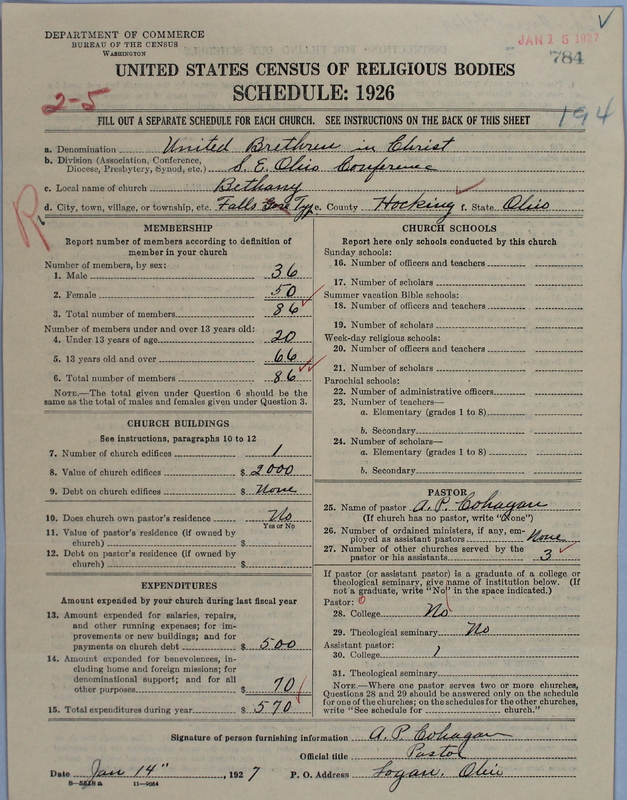 DEPARTMENT OF COMMERCE
BUREAU OF THE CENSUS
WASHINGTON
JAN 15 1927
784
UNITED STATES CENSUS OF RELIGIOUS BODIES
SCHEDULE: 1926
2-5
194
FILL OUT A SEPARATE SCHEDULE FOR EACH CHURCH. SEE INSTRUCTIONS ON THE BACK OF THIS SHEET
a. Denomination United Brethren in Christ
b. Division (Association, Conference,
Diocese, Presbytery, Synod, etc.) S. E. Ohio Conference
c. Local name of church Bethany
d. City, town, village, or township, etc. Falls Gore Typ e. County Hocking f. State Ohio
R
MEMBERSHIP
Report number of members according to definition of
member in your church
Number of members, by sex:
1. Male 36
2. Female 50
3. Total number of members 86
Number of members under and over 13 years old:
4. Under 13 years of age 20
5. 13 years old and over 66
6. Total number of members 86
NOTE.—The total given under Question 6 should be
same as the total of males and females given under Question 3.
CHURCH BUILDINGS
See instructions, paragraphs 10 to 12
7. Number of church edifices 1
8. Value of church edifices $ 2000
9. Debt on church edifices $ None
10. Does church own pastor's residence No
Yes or No
11. Value of pastor's residence (if owned by
church) $
12. Debt on pastor's residence (if owned by
church) $
EXPENDITURES
Amount expended by your church during last fiscal year
13. Amount expended for salaries, repairs,
and other running expenses; for im-
provements or new buildings; and for
payments on church debt $ 500
14. Amount expended for benevolences, in-
cluding home and foreign missions; for
denominational support; and for all
other purposes $ 70
15. Total expenditures during year $ 570
CHURCH SCHOOLS
Report here only schools conducted by this church
Sunday schools:
16. Number of officers and teachers
17. Number of scholars
Summer vacation Bible schools:
18. Number of officers and teachers
19. Number of scholars
Week-day religious schools:
20. Number of officers and teachers
21. Number of scholars
Parochial schools:
22. Number of administrative officers
23. Number of teachers—
a. Elementary (grades 1 to 8)
b. Secondary
24. Number of scholars—
a. Elementary (grades 1 to 8)
b. Secondary
PASTOR
25. Name of pastor A. P. Cohagan
(If church has no pastor, write "None")
26. Number of ordained ministers, if any, em-
ployed as assistant pastors None
27. Number of other churches served by the
pastor or his assistants 3
If pastor (or assistant pastor) is a graduate of a college or
theological seminary, give name of institution below. (If
not a graduate, write "No" in the space indicated.)
Pastor:
28. College No
29. Theological seminary No
Assistant pastor:
30. College
31. Theological seminary
NOTE.—Where one pastor serves two or more churches,
Questions 28 and 29 should be answered only on the schedule
for one of the churches; on the schedules for the other churches,
write "See schedule for church."
Signature of person furnishing information A. P. Cohagan
Official title Pastor
Date Jan 14", 1927 P. O. Address Logan, Ohio
8-5518 a 11-9084